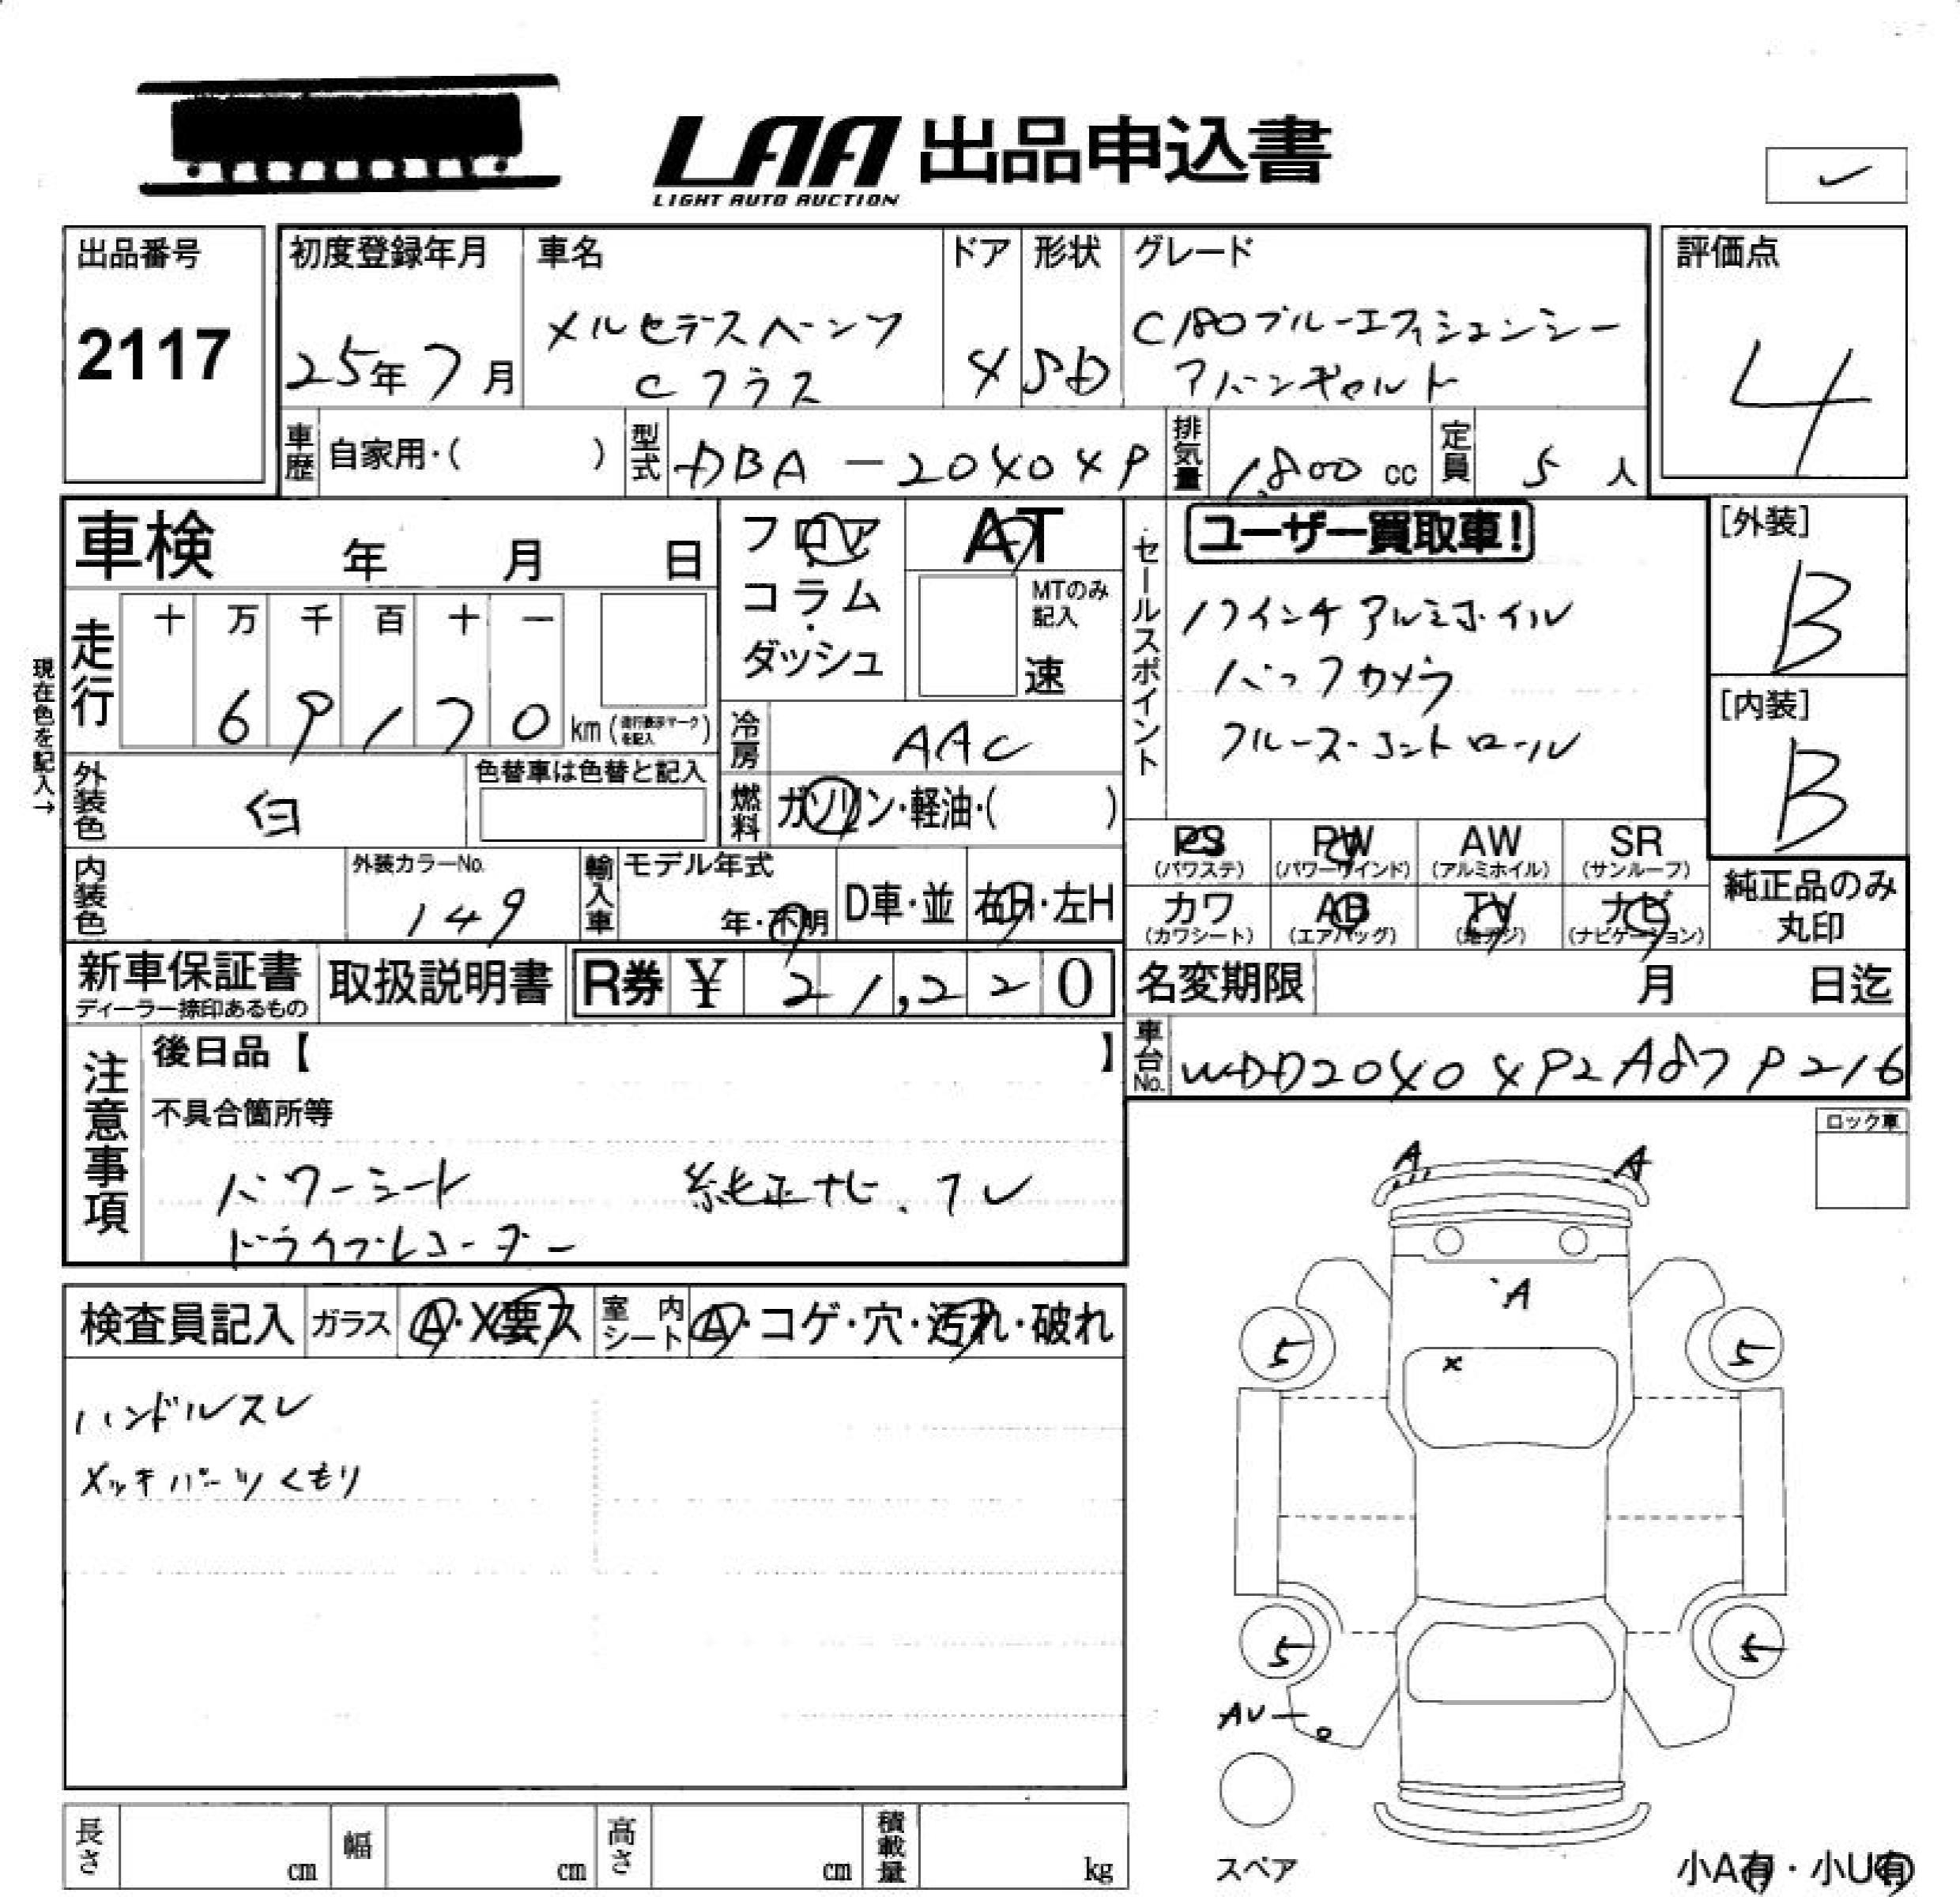 LAA 出品申込書
LIGHT AUTO AUCTION
✓
出品番号
2117
初度登録年月
25年7月
車名
メルセデスベンツ
Cクラス
ドア
4
形状
SD
グレード
C180ブルーエフィシェンシー
アバンギャルド
評価点
4
車歴 自家用・( )
型式 DBA-204049
排気量 1,800 cc
定員 5 人
車検 年 月 日
フロア
・
コラム
・
ダッシュ
AT
MTのみ
記入
速
セールスポイント
ユーザー買取車!
17インチアルミホイル
バックカメラ
クルーズ・コントロール
[外装]
B
[内装]
B
現在色を記入→
走行
十 万 千 百 十 一
69170 km (走行表示マークを記入)
冷房 AAC
外装色 白
色替車は色替と記入
燃料 ガソリン・軽油・( )
PS
(パワステ)
PW
(パワーウインド)
AW
(アルミホイル)
SR
(サンルーフ)
内装色
外装カラーNo.
149
輸入車
モデル年式
年・不明
D車・並
右H・左H
カワ
(カワシート)
AB
(エアバッグ)
TV
(地デジ)
ナビ
(ナビゲーション)
純正品のみ
丸印
新車保証書
ディーラー捺印あるもの
取扱説明書
R券 ¥ 21,220
名変期限 月 日迄
車台No. WDD2040492A879216
注意事項
後日品【 】
不具合箇所等
パワーシート 純正ナビ、テレ
ドライブレコーダー
ロック車
検査員記入
ガラス A・X要ス
室内シート A・コゲ・穴・汚れ・破れ
ハンドルスレ
メッキパーツくもり
A A
A
5 5
x
5 5
AU
スペア
小A有・小U有
長さ cm
幅 cm
高さ cm
積載量 kg